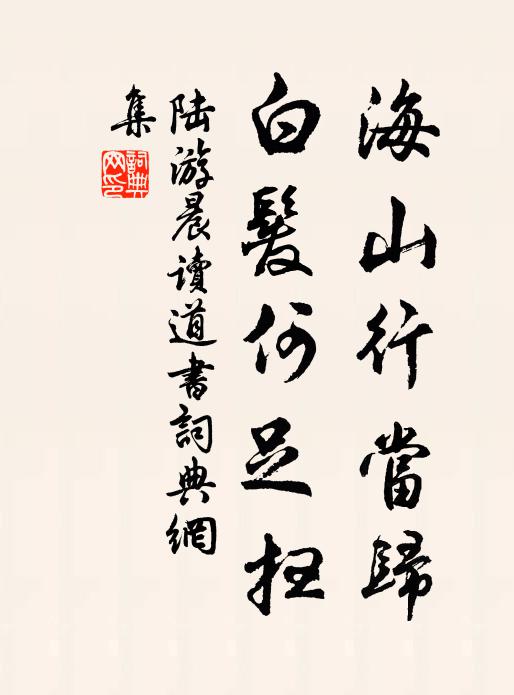 海山行當歸
白髮何足
陸游晨讀道書詞典網
集
詞典
网印